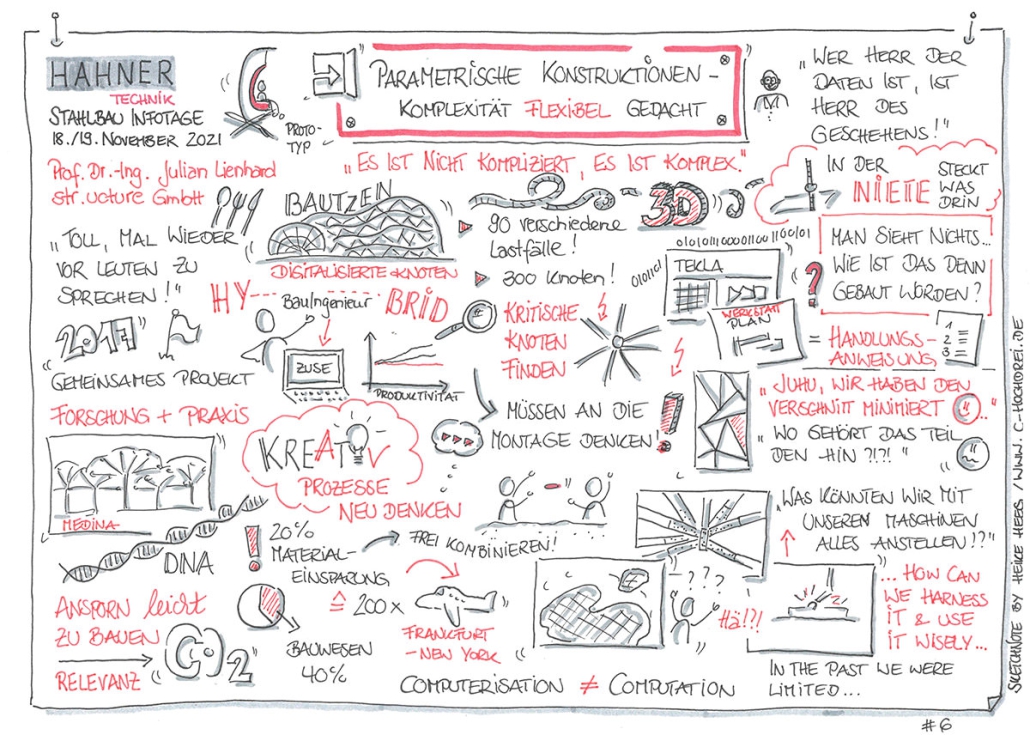 HAHNER
TECHNIK
STAHLBAU INFOTAGE
18./19. NOVEMBER 2021
PROTO-
TYP
PARAMETRISCHE KONSTRUKTIONEN -
KOMPLEXITÄT FLEXIBEL GEDACHT
„WER HERR DER
DATEN IST, IST
HERR DES
GESCHEHENS!"
Prof. Dr.-Ing. Julian Lienhard
str.ucture GmbH
„ES IST NICHT KOMPLIZIERT, ES IST KOMPLEX."
IN DER
NIETE
STECKT
WAS
DRIN
„TOLL, MAL WIEDER
VOR LEUTEN ZU
SPRECHEN!"
BAUTZEN
DIGITALISIERTE KNOTEN
3D
90 verschiedene
Lastfälle!
300 Knoten!
0101011100001100110010
0101101
TEKLA
WERKSTATT
PLAN
MAN SIEHT NICHTS...
WIE IST DAS DENN
GEBAUT WORDEN?
?
= HANDLUNGS-
ANWEISUNG
1
2
3
HY---BRID
BauIngenieur
ZUSE
PRODUKTIVITÄT
KRITISCHE
KNOTEN
FINDEN
2017
GEMEINSAMES PROJEKT
FORSCHUNG + PRAXIS
MEDINA
KREATIV
PROZESSE
NEU DENKEN
MÜSSEN AN DIE
MONTAGE DENKEN!
„JUHU, WIR HABEN DEN
VERSCHNITT MINIMIERT"
„WO GEHÖRT DAS TEIL
DEN HIN ?!?!"
DNA
20%
MATERIAL-
EINSPARUNG
≙ 200 x
FREI KOMBINIEREN!
FRANKFURT
- NEW YORK
„WAS KÖNNTEN WIR MIT
UNSEREN MASCHINEN
ALLES ANSTELLEN!?"
ANSPORN leicht
ZU BAUEN
RELEVANZ
CO2
BAUWESEN
40%
???
Hä!?!
... HOW CAN
WE HARNESS
IT & USE
IT WISELY...
IN THE PAST WE WERE
LIMITED...
COMPUTERISATION ≠ COMPUTATION
SKETCHNOTE BY HEIKE HEERS / WWW.C-HOCHDREI.DE
#6